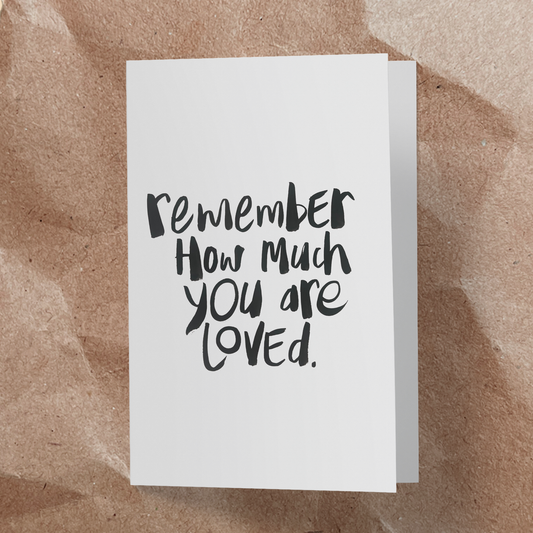 remember
How Much
you are
Loved.